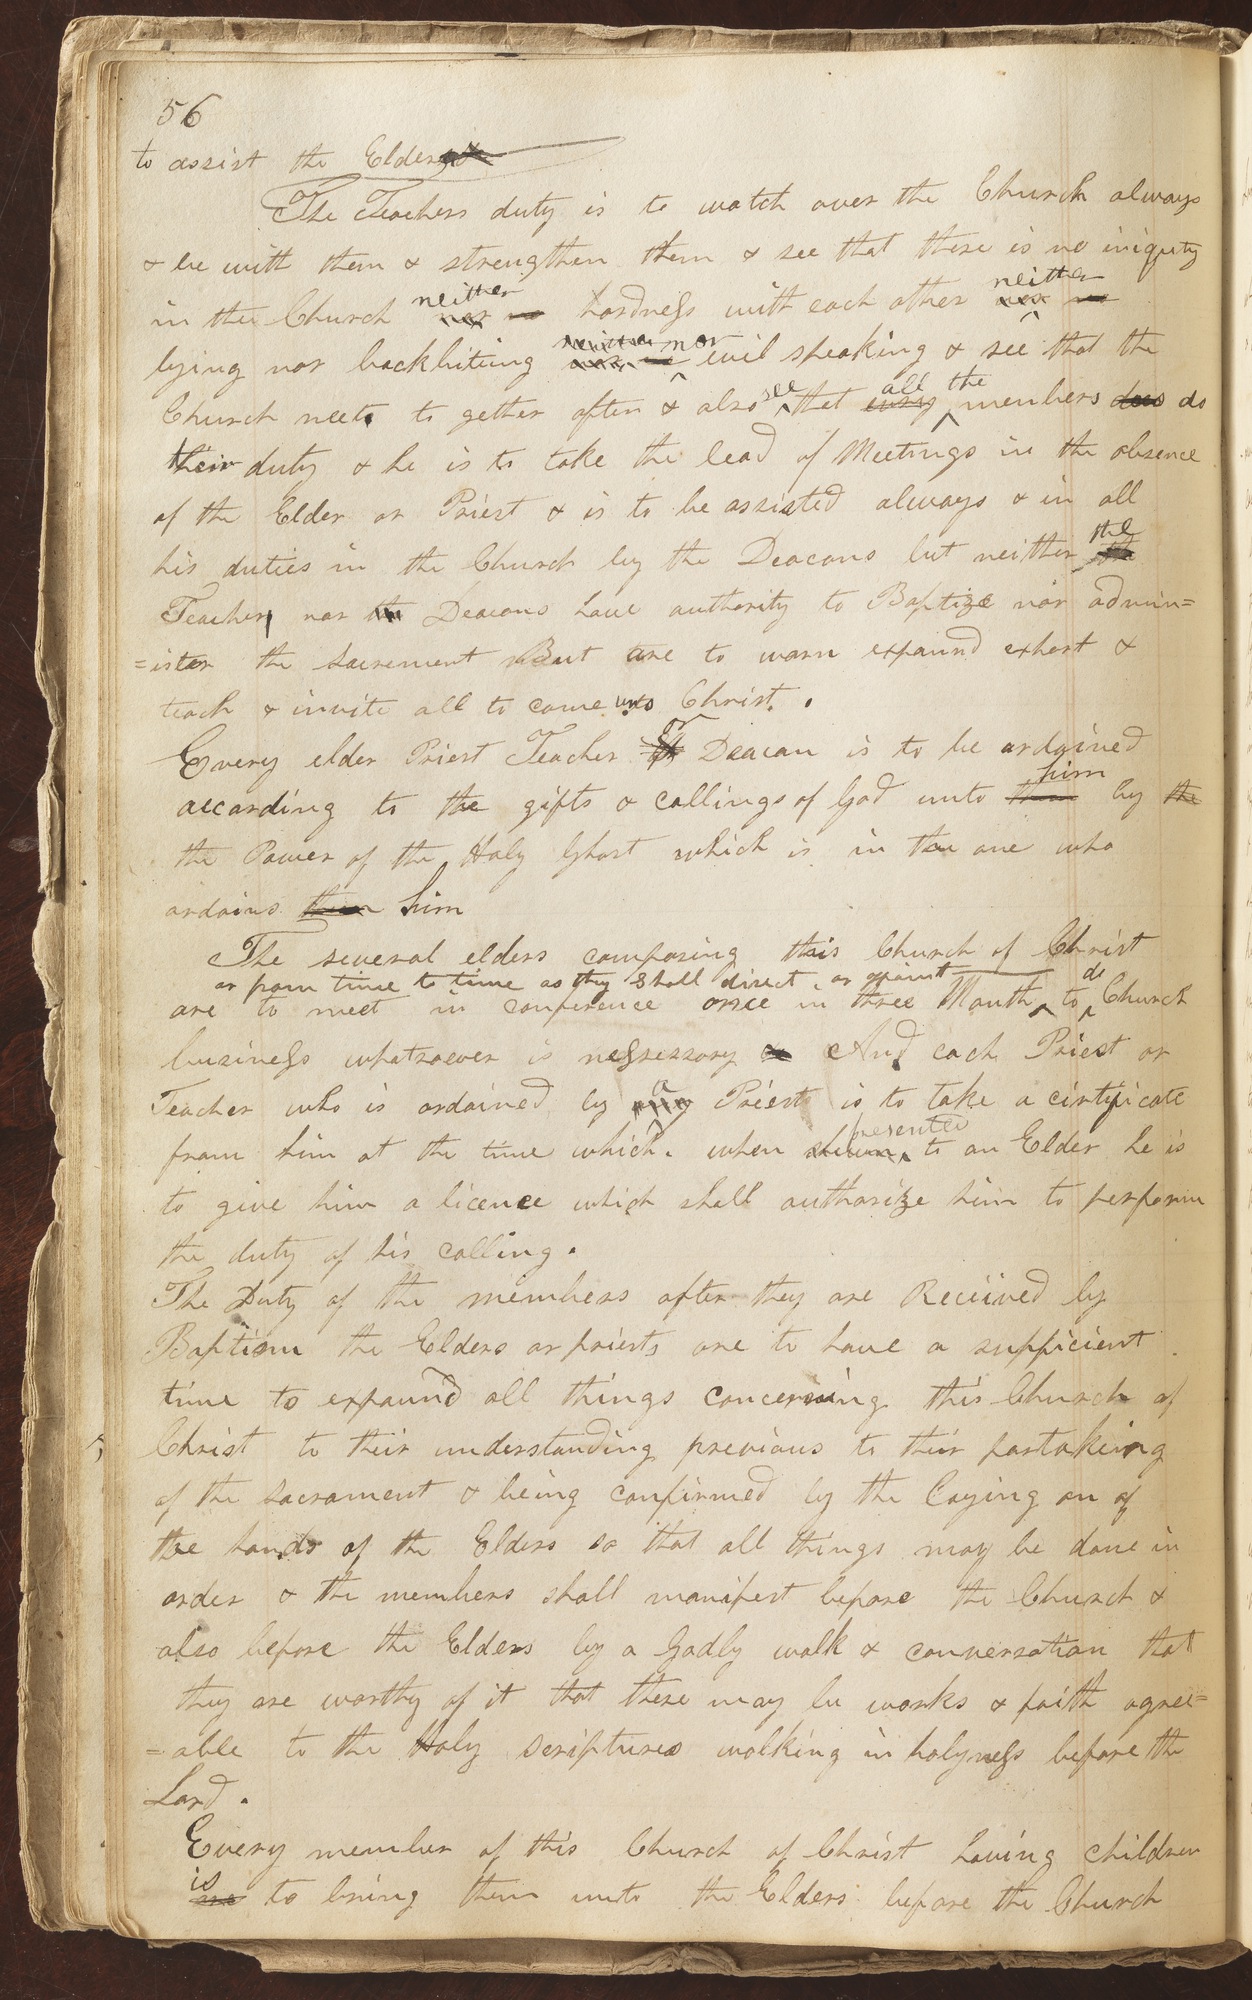 56
to assist the Elder
The Teachers duty is to watch over the Church always
& be with them & strengthen them & see that there is no iniquity
neither neither
in the Church nor no hardness with each other nor no
neither nor
lying nor backbiting nor no evil speaking & see that the
see all the
Church meets to gether often & also that every members does do
their duty & he is to take the lead of Meetings in the absence
of the Elder or Priest & is to be assisted always & in all
the
his duties in the Church by the Deacons but neither the
Teachers nor the Deacons have authority to Baptize nor admin=
=ister the sacrement But are to warn expound exhort &
teach & invite all to come unto Christ.
or
Every elder Priest Teacher or Deacon is to be ordained
him
according to the gifts & callings of God unto them by the
the Power of the Holy Ghost which is in the one who
ordains them him
The several elders composing this Church of Christ
or from time to time as they shall direct or apoint de
are to meet in conference once in three Month to Church
business whatsoever is nessessary & And each Priest or
a
Teacher who is ordained by any Priest is to take a cirtificate
presented
from him at the time which when shewn to an Elder he is
to give him a licence which shall authorize him to perform
the duty of his calling.
The Duty of the members after they are Received by
Baptism the Elders or priests are to have a sufficient
time to expound all things concerning this Church of
Christ to their understanding previous to their partakeing
of the sacrament & being confirmed by the laying on of
the hands of the Elders so that all things may be done in
order & the members shall manifest before the Church &
also before the Elders by a Godly walk & conversation that
they are worthy of it that there may be works & faith agree=
=able to the Holy scriptures walking in holyness before the
Lord.
Every member of this Church of Christ having children
is
are to bring them unto the Elders before the Church